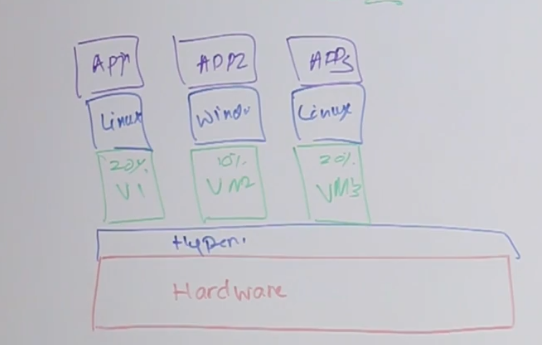 App1 APP2 APP3
Linux Windo Linux
20% 10% 20%
V1 VM2 VM3
Hyper.
Hardware